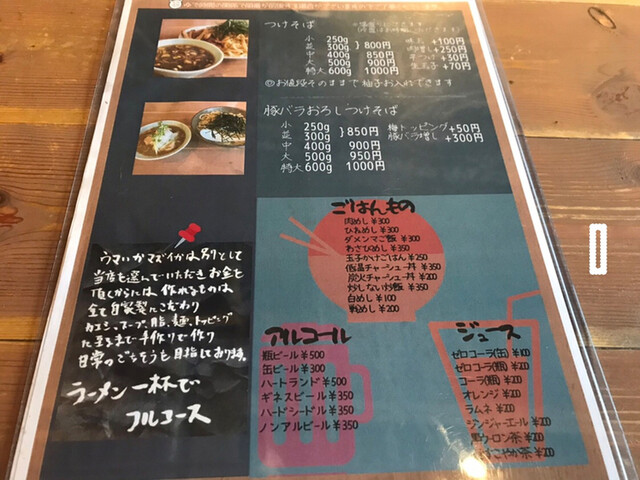 つけそば
小 250g
並 300g }800円
中 400g 850円
大 500g 900円
特大600g 1000円
+100円
+250円
+30円
生玉子 +70円
◎お値段そのままで柚子お入れできます
豚バラおろしつけそば
小 250g
並 300g }850円
中 400g 900円
大 500g 950円
特大600g 1000円
梅トッピング+50円
豚バラ増し +300円
ごはんもの
肉めし ¥300
ひねめし ¥300
ダメンマご飯 ¥300
わさびめし ¥350
玉子かけごはん ¥250
低温チャーシュー丼 ¥350
炭火チャーシュー丼 ¥200
炒しない炒飯 ¥350
白めし ¥100
鞄めし ¥200
ウマいかマズイかは別として
当店を選んでいただきお金を
頂くからには 作れるものは
全て自家製にこだわり
カエシ、スープ、脂、麺、トッピング
たまるまで手作りで作り
日常のごちそうも目指しております。
ラーメン一杯で
フルコース
アルコール
瓶ビール ¥500
缶ビール ¥300
ハートランド ¥500
ギネスビール ¥350
ハードシードル ¥350
ノンアルビール ¥350
ジュース
ゼロコーラ(缶) ¥100
ゼロコーラ(瓶) ¥200
コーラ(瓶) ¥200
オレンジ ¥200
ラムネ ¥200
ジンジャーエール ¥200
黒ウーロン茶 ¥200
すこやか茶 ¥200